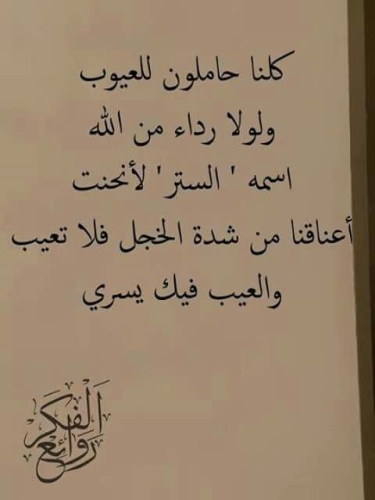 كلنا حاملون للعيوب
ولولا رداء من الله
اسمه ' الستر' لأنحنت
أعناقنا من شدة الخجل فلا تعيب
والعيب فيك يسري
روائع الفكر